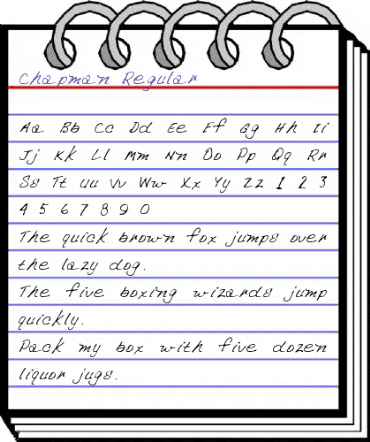 Chapman Regular
Aa Bb Cc Dd Ee Ff Gg Hh Ii
Jj Kk Ll Mm Nn Oo Pp Qq Rr
Ss Tt Uu Vv Ww Xx Yy Zz 1 2 3
4 5 6 7 8 9 0
The quick brown fox jumps over
the lazy dog.
The five boxing wizards jump
quickly.
Pack my box with five dozen
liquor jugs.